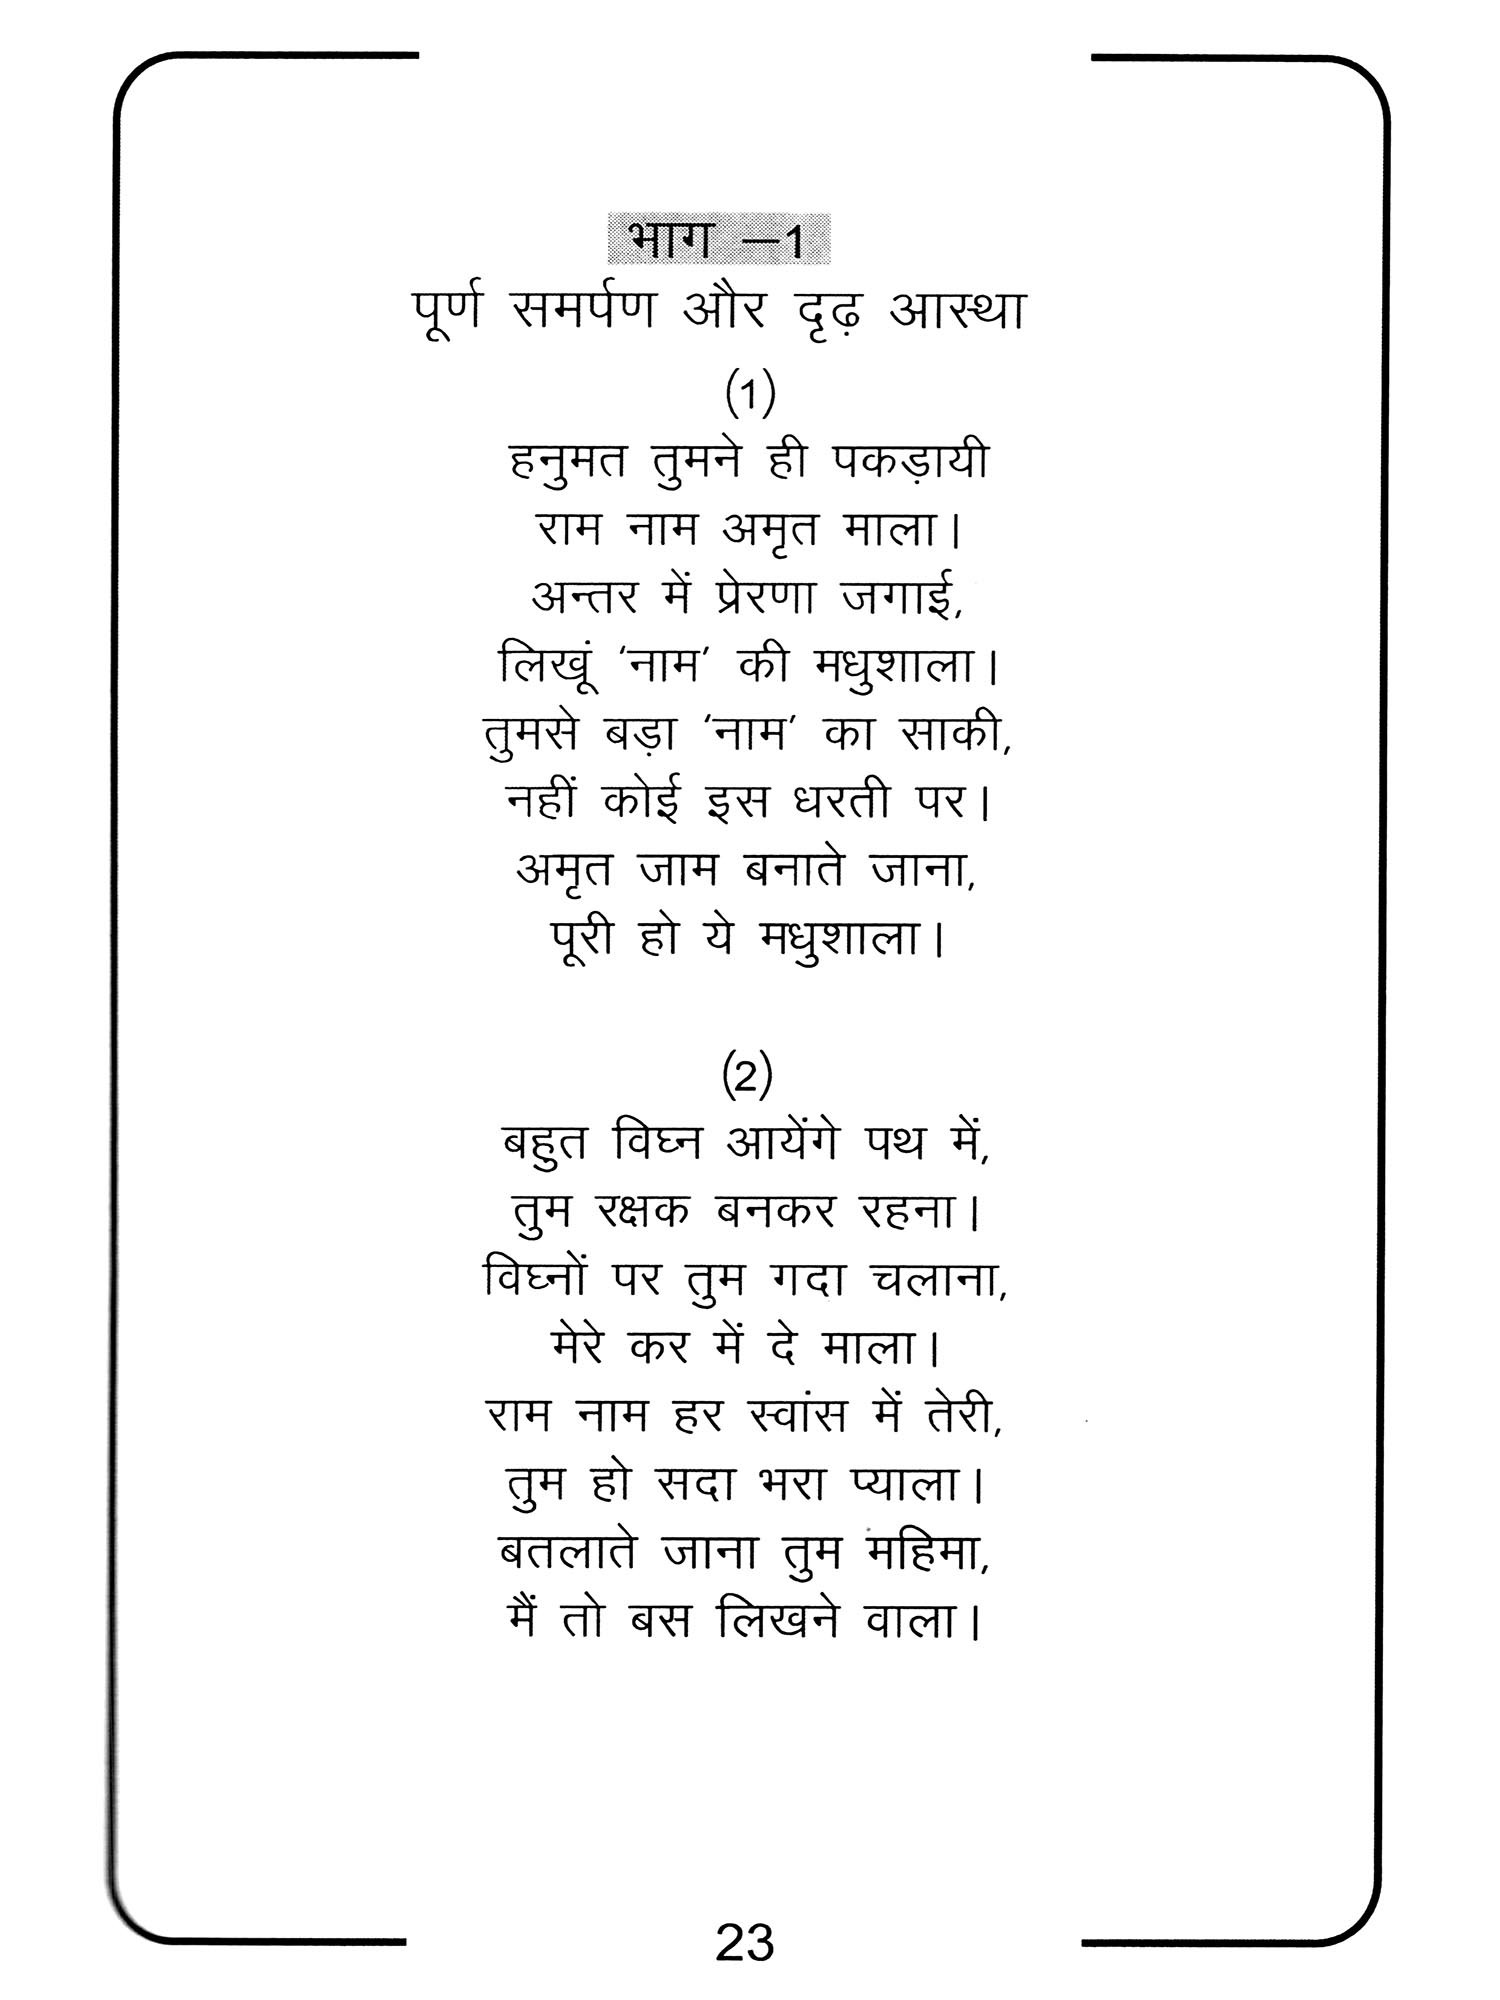 भाग –1
पूर्ण समर्पण और दृढ़ आस्था
(1)
हनुमत तुमने ही पकड़ायी
राम नाम अमृत माला।
अन्तर में प्रेरणा जगाई,
लिखूं ‘नाम’ की मधुशाला।
तुमसे बड़ा ‘नाम’ का साकी,
नहीं कोई इस धरती पर।
अमृत जाम बनाते जाना,
पूरी हो ये मधुशाला।
(2)
बहुत विघ्न आयेंगे पथ में,
तुम रक्षक बनकर रहना।
विघ्नों पर तुम गदा चलाना,
मेरे कर में दे माला।
राम नाम हर स्वांस में तेरी,
तुम हो सदा भरा प्याला।
बतलाते जाना तुम महिमा,
मैं तो बस लिखने वाला।
23